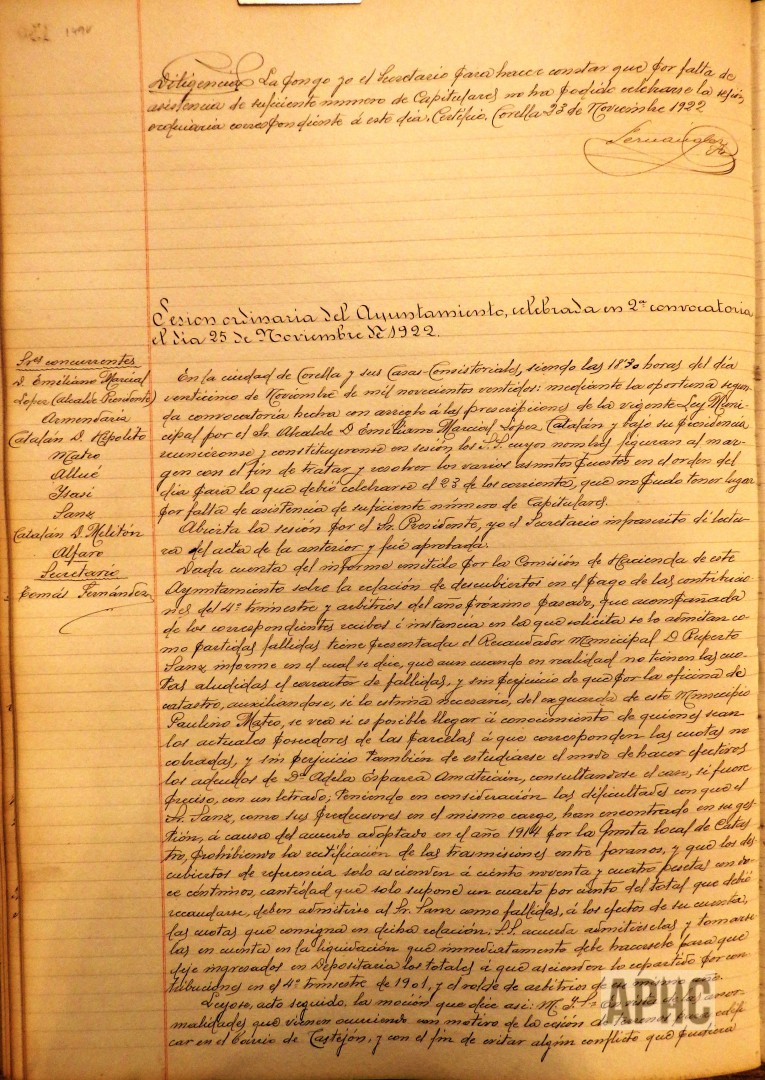 Diligencia. La pongo yo el Secretario para hacer constar que por falta de
asistencia de suficiente número de Capitulares no ha podido celebrarse la sesión
ordinaria correspondiente á este día. Certifico. Corella 23 de Noviembre 1922
Fernandez
Sesion ordinaria del Ayuntamiento, celebrada en 2ª convocatoria
el día 25 de Noviembre de 1922.
Sres concurrentes
D. Emiliano Marcial
Lopez (Alcalde Presidente)
Armendaria
Catalán D. Hipolito
Mateo
Allué
Ysasi
Sanz
Catalán D. Melitón
Alfaro
Secretario
Tomás Fernández
En la ciudad de Corella y sus Casas-Consistoriales, siendo las 18'30 horas del día
venticinco de Noviembre de mil novecientos ventidos: mediante la oportuna segun-
da convocatoria hecha con arreglo á las prescripciones de la vigente Ley Muni-
cipal por el Sr. Alcalde D. Emiliano Marcial Lopez Catalán y bajo su Presidencia
reunieronse y constituyeronse en sesión los S.S. cuyos nombres figuran al mar-
gen con el fin de tratar y resolver los varios asuntos puestos en el orden del
día para la que debió celebrarse el 23 de los corrientes, que no pudo tener lugar
por falta de asistencia de suficiente número de Capitulares.
Abierta la sesión por el Sr. Presidente, yo el Secretario infrascrito dí lectu-
ra del acta de la anterior y fué aprobada.
Dada cuenta del informe emitido por la Comisión de Hacienda de este
Ayuntamiento sobre la relación de descubiertos en el pago de las contribucio-
nes del 4º trimestre y arbitrios del año próximo pasado, que acompañada
de los correspondientes recibos é instancia en la que solicita se le admitan co-
mo partidas fallidas tiene presentada el Recaudador Municipal D. Ruperto
Sanz, informe en el cual se dice, que aun cuando en realidad no tienen las cuo-
tas aludidas el caracter de fallidas, y sin perjuicio de que por la oficina de
catastro, auxiliandose, si lo estima necesario, del exguarda de este Municipio
Paulino Mateo, se vea si es posible llegar á conocimiento de quienes sean
los actuales poseedores de las parcelas á que corresponden las cuotas no
cobradas, y sin perjuicio también de estudiarse el modo de hacer efectivos
los adeudos de Dª Adela Esparza Amatriain, consultandose el caso, si fuere
preciso, con un letrado; Teniendo en consideración las dificultades con que el
Sr. Sanz, como sus predecesores en el mismo cargo, han encontrado en su ges-
tión, á causa del acuerdo adoptado en el año 1914 por la Junta local de Catas-
tro, prohibiendo la rectificación de las trasmisiones entre foranos, y que los des-
cubiertos de referencia solo ascienden á ciento noventa y cuatro pesetas con do-
ce céntimos, cantidad que solo supone un cuarto por ciento del total que debió
recaudarse, deben admitirse al Sr. Sanz como fallidas, á los efectos de su cuenta,
las cuotas que consigna en dicha relación; S.S. acuerda admitirselas y tomarse-
las en cuenta en la liquidación que inmediatamente debe hacersele para que
deje ingresados en Depositaria los totales á que asciende lo repartido por con-
tribuciones en el 4º trimestre de 1901, y el saldo de arbitrios
Leyose, acto seguido, la moción que dice asi: M. Y. Sr. anor-
malidades que vienen ocurriendo con motivo de la cesión de
car en el Barrio de Castejón, y con el fin de evitar algún conflicto que pudiera
APHC